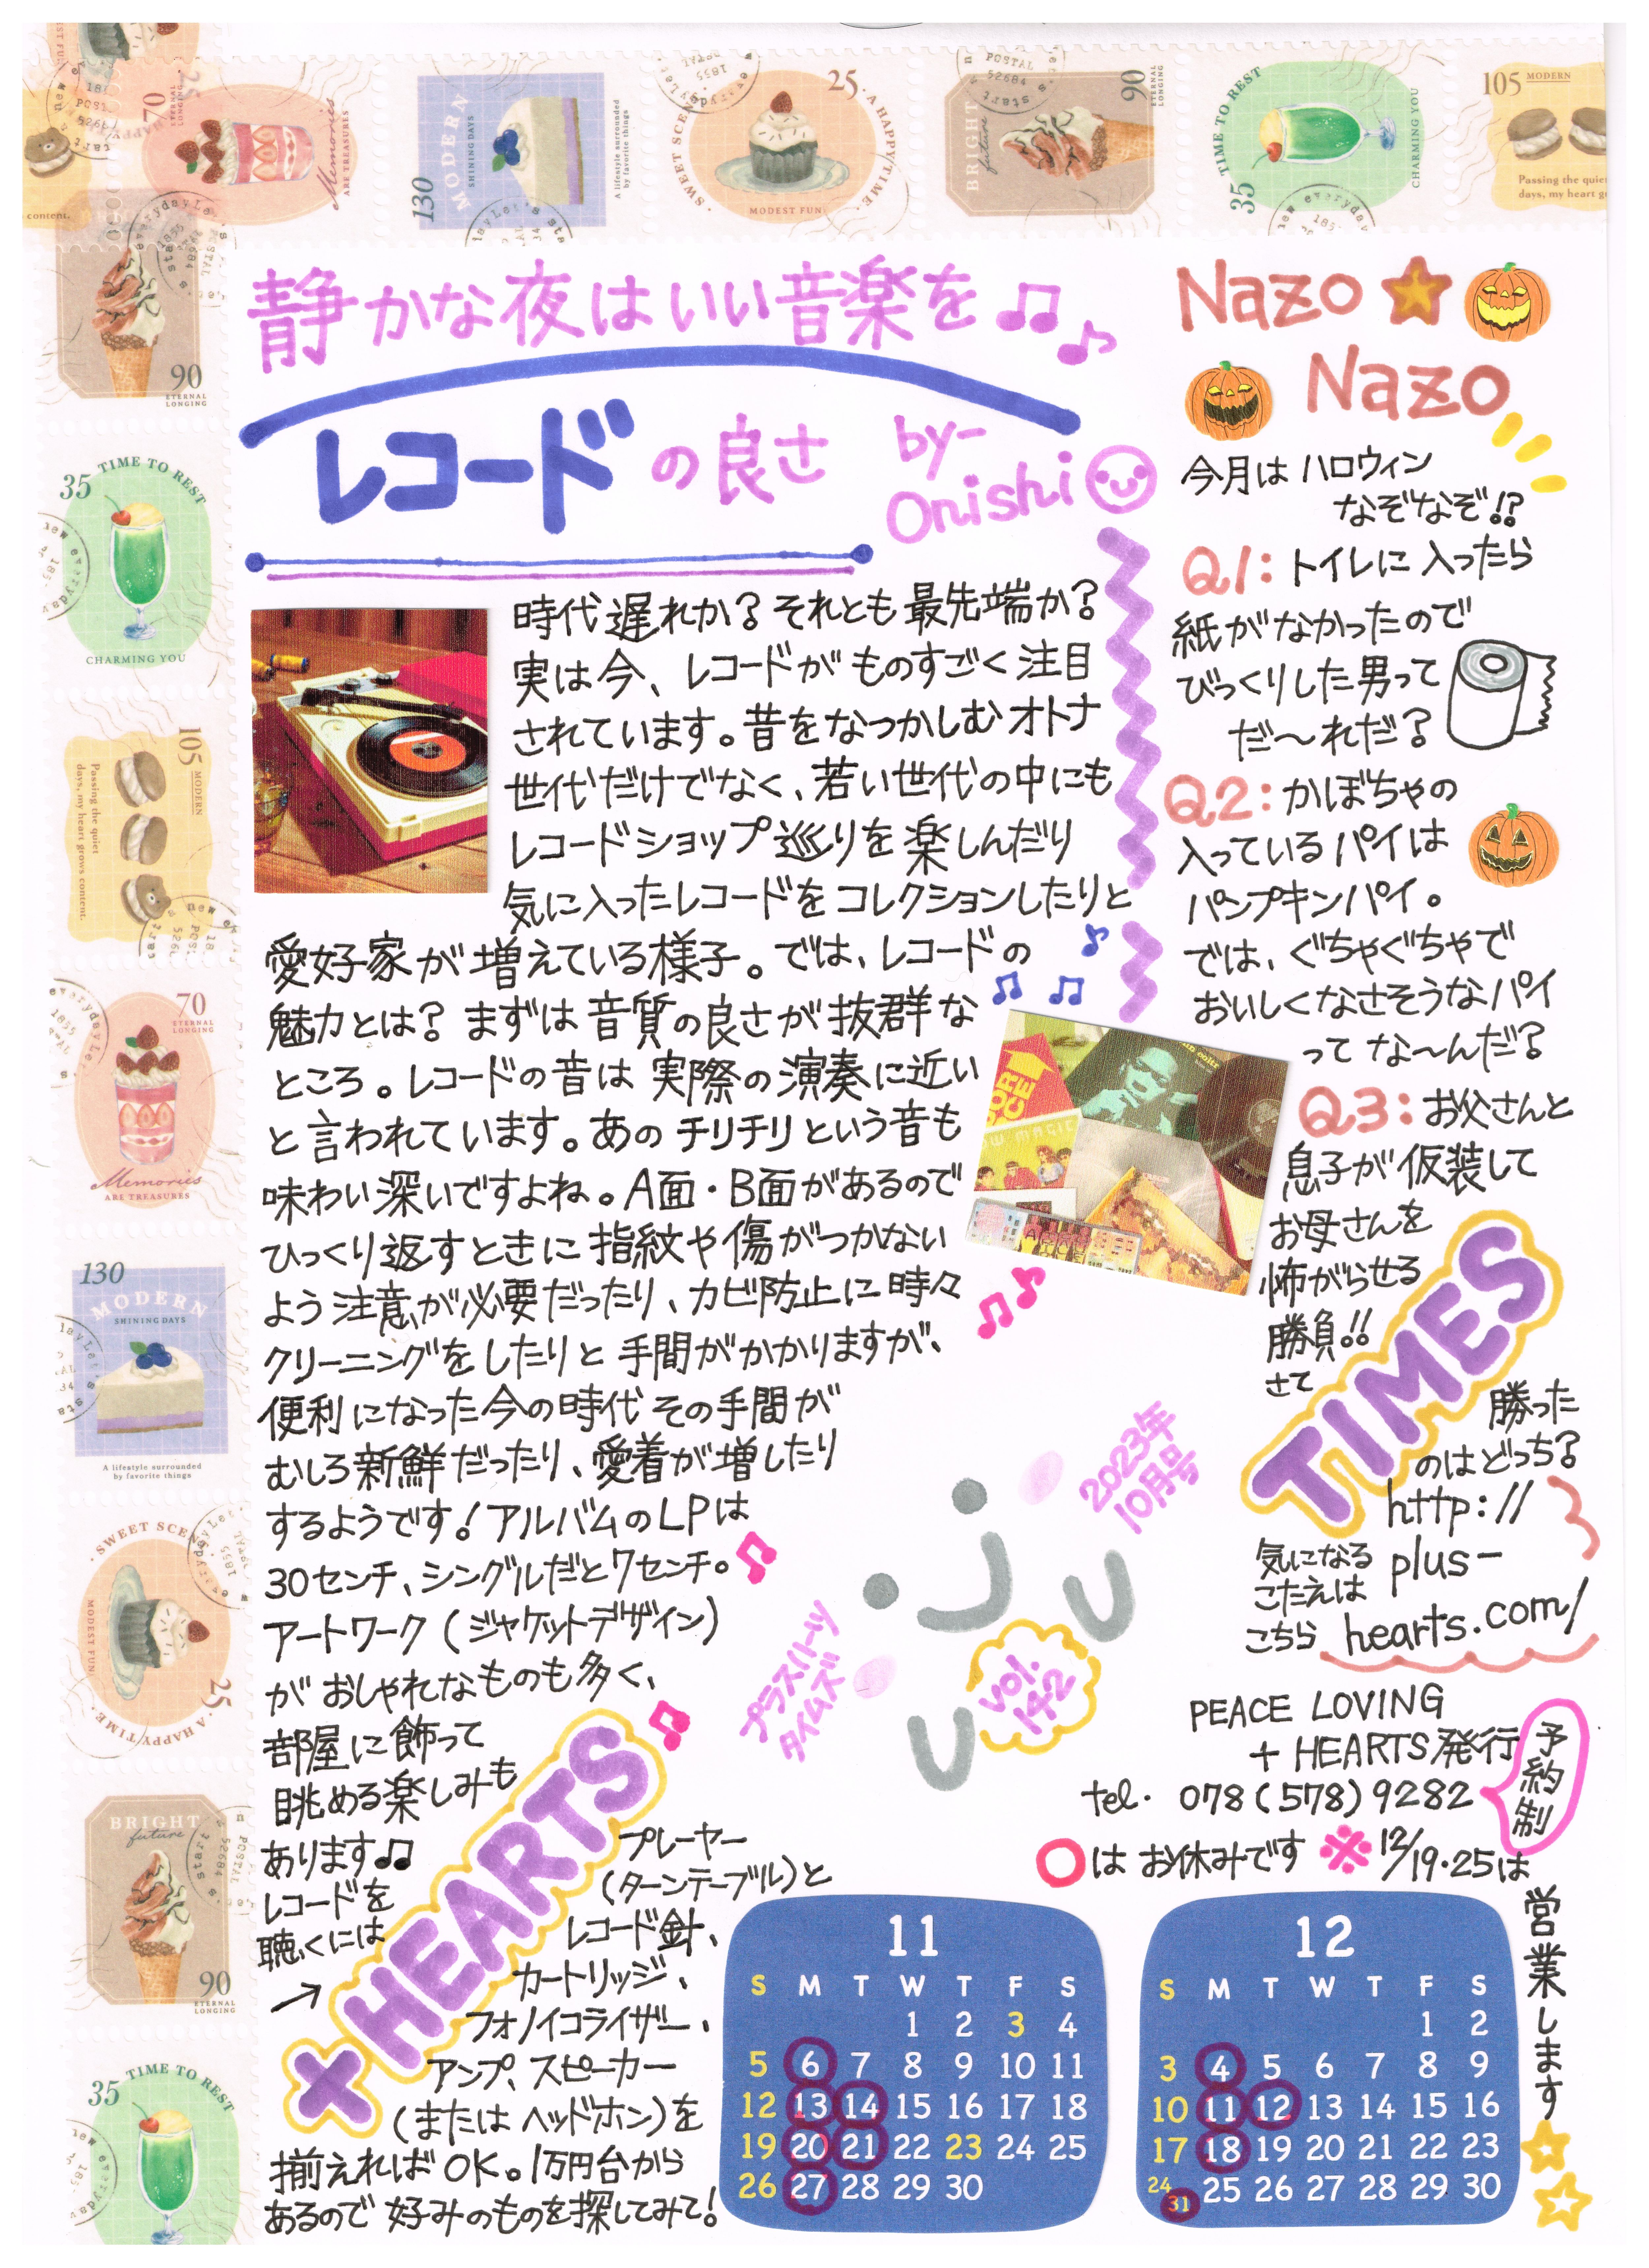 静かな夜はいい音楽を
レコードの良さ
by-
Onishi
時代遅れか？それとも最先端か？
実は今、レコードがものすごく注目
されています。昔をなつかしむオトナ
世代だけでなく、若い世代の中にも
レコードショップ巡りを楽しんだり
気に入ったレコードをコレクションしたりと
愛好家が増えている様子。では、レコードの
魅力とは？まずは音質の良さが抜群な
ところ。レコードの音は実際の演奏に近い
と言われています。あのチリチリという音も
味わい深いですよね。A面・B面があるので
ひっくり返すときに指紋や傷がつかない
よう注意が必要だったり、カビ防止に時々
クリーニングをしたりと手間がかかりますが、
便利になった今の時代その手間が
むしろ新鮮だったり、愛着が増したり
するようです！アルバムのLPは
30センチ、シングルだと7センチ。
アートワーク（ジャケットデザイン）
がおしゃれなものも多く、
部屋に飾って
眺める楽しみも
あります♫
レコードを
聴くには
→
プレーヤー
（ターンテーブル）と
レコード針、
カートリッジ、
フォノイコライザー、
アンプ、スピーカー
（またはヘッドホン）を
揃えればOK。1万円台から
あるので好みのものを探してみて！
+HEARTS
TIMES
Nazo
Nazo
今月はハロウィン
なぞなぞ!?
Q1：トイレに入ったら
紙がなかったので
びっくりした男って
だ〜れだ？
Q2：かぼちゃの
入っているパイは
パンプキンパイ。
では、ぐちゃぐちゃで
おいしくなさそうなパイ
ってな〜んだ？
Q3：お父さんと
息子が仮装して
お母さんを
怖がらせる
勝負!!
さて
勝った
のはどっち？
気になる
こたえは
こちら
http://
plus-
hearts.com/
2023年
10月号
プラスハーツ
タイムズ
vol.
142
PEACE LOVING
+ HEARTS発行
tel. 078(578)9282
予約制
○はお休みです ※12/19・25は
営業します
11
S M T W T F S
1 2 3 4
5 6 7 8 9 10 11
12 13 14 15 16 17 18
19 20 21 22 23 24 25
26 27 28 29 30
12
S M T W T F S
1 2
3 4 5 6 7 8 9
10 11 12 13 14 15 16
17 18 19 20 21 22 23
24 31 25 26 27 28 29 30
70
Memories
ARE TREASURES
130
MODERN
SHINING DAYS
A lifestyle surrounded
by favorite things
25
A HAPPY TIME
MODEST FUN
BRIGHT
future
90
ETERNAL
LONGING
35
TIME TO REST
CHARMING YOU
105
MODERN
90
ETERNAL
LONGING
35
TIME TO REST
CHARMING YOU
105
MODERN
Passing the quiet
days, my heart grows content.
70
ETERNAL
LONGING
Memories
ARE TREASURES
130
MODERN
SHINING DAYS
A lifestyle surrounded
by favorite things
25
A HAPPY TIME
MODEST FUN
BRIGHT
future
90
ETERNAL
LONGING
35
TIME TO REST